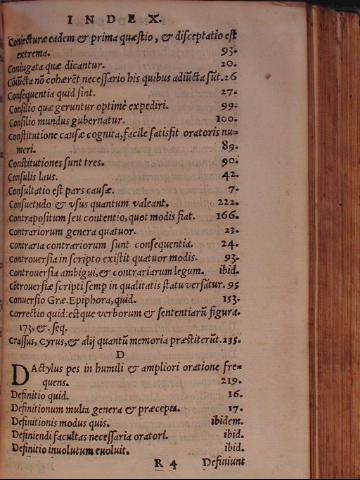 INDEX.
Coniecturæ eadem & prima quæstio, & disceptatio est
extrema. 93.
Coniugata quæ dicantur. 20.
Cōiūcta nō cohærēt necessario his quibus adiūcta sūt. 26
Consequentia quid sint. 27.
Consilio quæ geruntur optimè expediri. 99.
Consilio mundus gubernatur. 100.
Constitutione causæ cognita, facile satisfit oratoris nu-
meri. 89.
Constitutiones sunt tres. 90.
Consulis laus. 42.
Consultatio est pars causæ. 7.
Consuetudo & vsus quantum valeant. 222.
Contrapositum seu contentio, quot modis fiat. 166.
Contrariorum genera quatuor. 23.
Contraria contrariorum sunt consequentia. 24.
Controuersia in scripto existit quatuor modis. 93.
Controuersia ambigui, & contrariarum legum. ibid.
Cōtrouersiæ scripti semp in qualitatis statu versātur. 95
Conuersio Græ. Epiphora, quid. 153.
Correctio quid: estque verborum & sententiarū figura.
173. &. seq.
Crassus, Cyrus, & alij quantū memoria præstiterūt. 235.
D
DActylus pes in humili & ampliori oratione fre-
quens. 219.
Definitio quid. 16.
Definitionum multa genera & præcepta. 17.
Definitionis modus quis. ibidem.
Definiendi facultas necessaria oratori. ibid.
Definitio inuolutum euoluit. ibid.
R 4 Definiunt